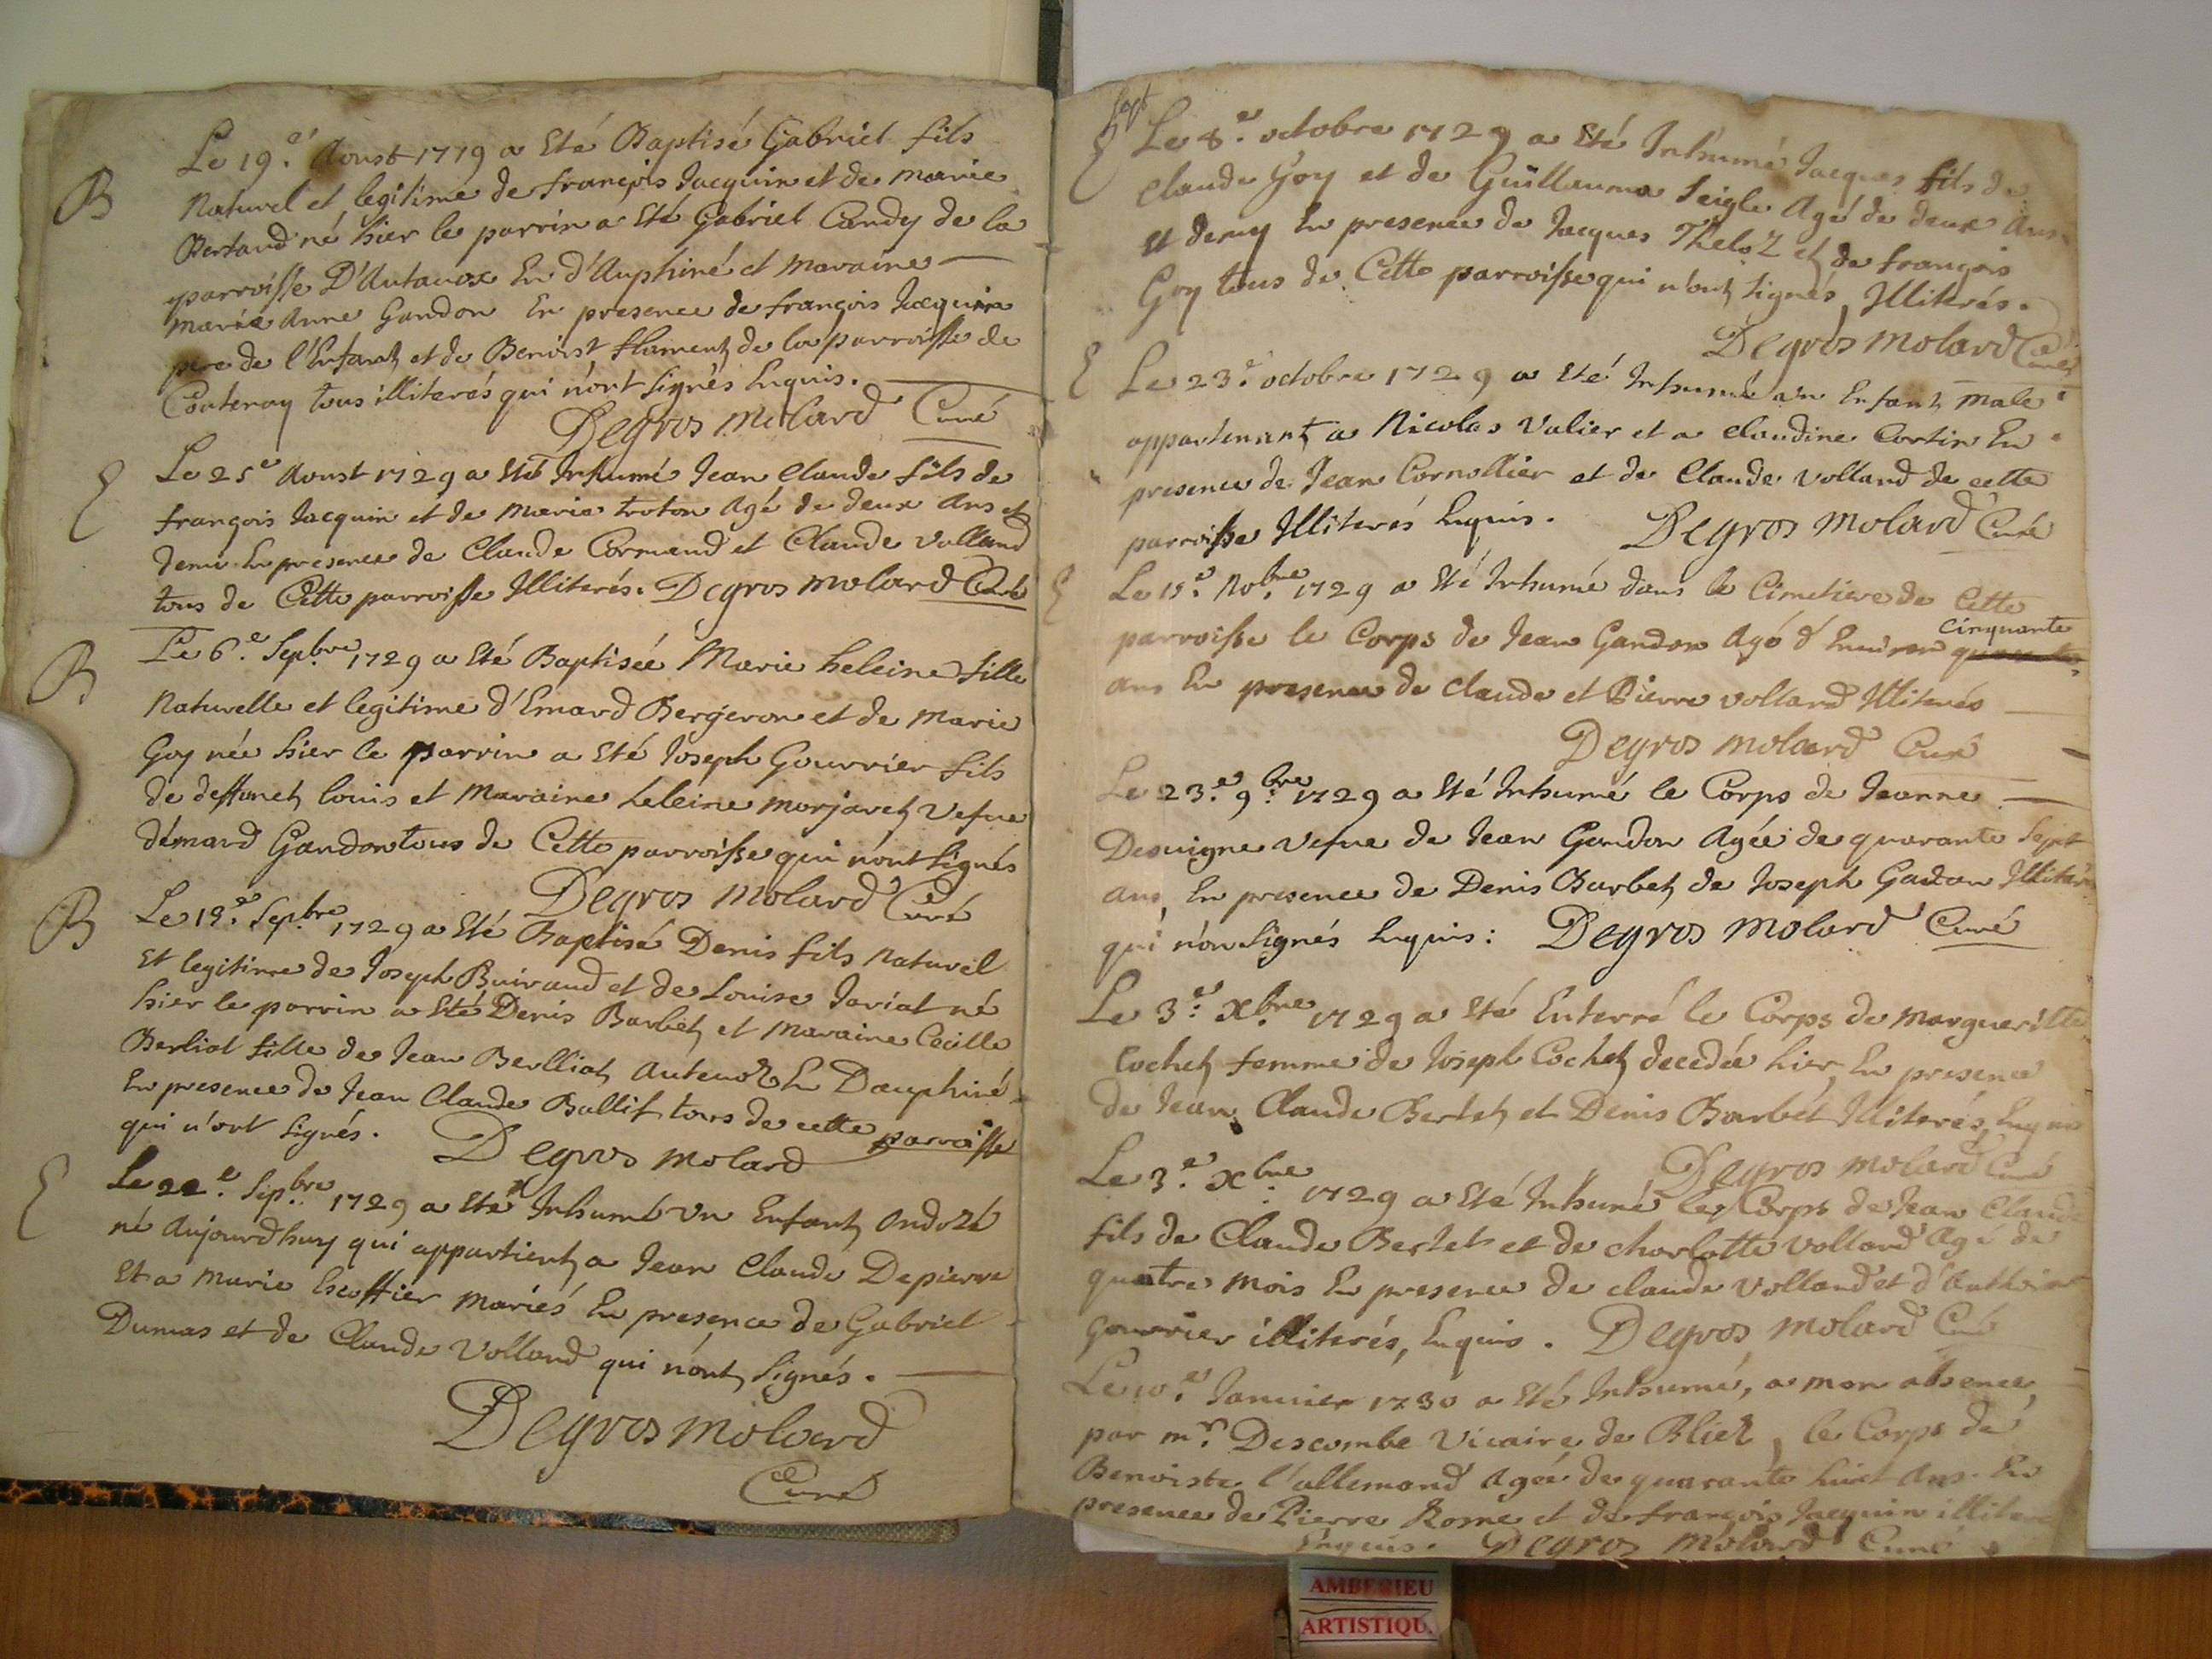 B
Le 19.e Aoust 1779 a Eté Baptisé Gabriel fils
Naturel et legitime de françois Jacquin et de marie
Bertaud né hier le parrin a Eté Gabriel Candy de la
parroisse D'Antauox En d'Auphiné et maraine
marie anne Gandon En presence de françois Jacquin
pere de l'Enfant et de Benoist flament de la parroisse de
Conteray tous illiterés qui n'ont signés Enquis.
Degros molard Curé
E
Le 25e Aoust 1729 a Eté Inhumé Jean Claude fils de
françois Jacquin et de marie troton Agé de deux Ans et
demi En presence de Claude Cormand et Claude Volland
tous de Cette parroisse Illiterés. Degros molard Curé
B
Le 6.e Sepbre 1729 a Eté Baptisée Marie heleine fille
Naturelle et legitime d'Emard Bergeron et de marie
Goy née hier le parrin a Eté Joseph Gourrier fils
de deffunct louis et Maraine heleine morjaret Vefue
d'émard Gandon tous de Cette parroisse qui n'ont signés
Degros Molard Curé
B
Le 18.e Sepbre 1729 a Eté Baptisé Denis fils Naturel
Et legitime de Joseph Buiraud et de Louise Jariat né
hier le parrin a Eté Denis Barbet et Maraine Cecille
Berliat fille de Jean Berlliat Antenoz En Dauphiné
En presence de Jean Claude Ballif tous de cette parroisse
qui n'ont signés. Degros molard
E
Le 22.e Sepbre 1729 a Eté Inhumé Un Enfant Ondozé
né Aujourdhuy qui appartient a Jean Claude Depierre
Et a Marie Escoffier Mariés En presence de Gabriel
Dumas et de Claude Volland qui n'ont signés.
Degros molard
Curé
Sept
E
Le 8.e octobre 1729 a Eté Inhumé Jacques fils de
Claude Goy et de Guillauma Seigle Agé de deux Ans
et demy En presence de Jacques Theloz et de françois
Goy tous de Cette parroisse qui n'ont signés Illiterés.
Degros molard Curé
E
Le 23.e octobre 1729 a Eté Inhumé un Enfant Male
appartenant a Nicolas Valier et a claudine Cortin En
presence de Jean Cornollier et de Claude Volland de cette
parroisse Illiterés Enquis. Degros molard Curé
E
Le 15.e Nobre 1729 a Eté Inhumé dans le Cimetiere de Cette
parroisse le Corps de Jean Gandon Agé d'Enuiron cinquante
ans En presence de Claude et Pierre volland Illiterés
Degros molard Curé
Le 23.e 9bre 1729 a Eté Inhumé le Corps de Jeanne
Desuigne Vefue de Jean Gandon Agée de quarante Sept
ans En presence de Denis Barbet de Joseph Gadon Illiterés
qui n'on signés Enquis: Degros molard Curé
Le 3.e Xbre 1729 a Eté Enterré le Corps de Marguerite
Cochet femme de Joseph Cochet decedée hier En presence
de Jean Claude Bertet et Denis Barbet Illiterés, Enquis
Degros molard Curé
Le 3.e Xbre 1729 a Eté Inhumé le Corps de Jean Claude
fils de Claude Bertet et de charlotte volland Agé de
quatre mois En presence de claude Volland et d'Anthoine
Gourrier illiterés, Enquis. Degros molard Curé
Le 10.e Januier 1730 a Eté Inhumé, a mon absence,
par mr. Descombe Vicaire de Bliez, le Corps de
Benoiste l'allemand Agée de quarante huit Ans. En
presence de Pierre Rome et de françois Jacquin illiterés
Enquis. Degros molard Curé
AMBERIEU
ARTISTIQU